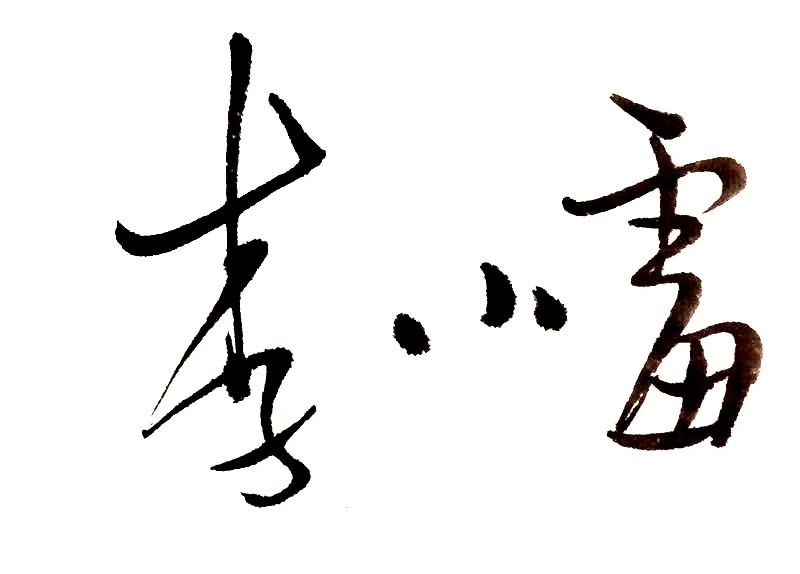 李小雷